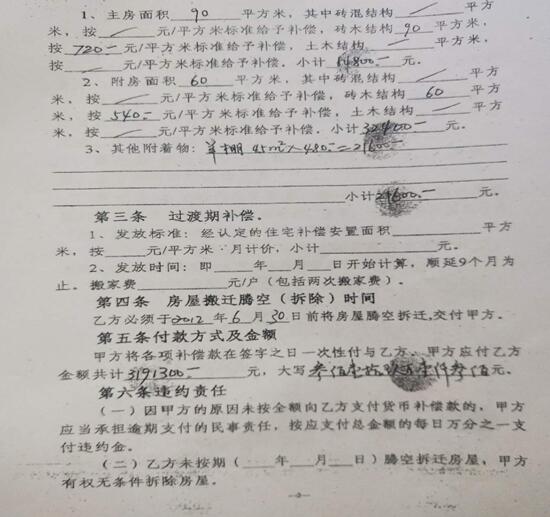 1、主房面积 90 平方米，其中砖混结构 / 平方
米，按 / 元/平方米标准给予补偿，砖木结构 90 平方米，
按 720- 元/平方米标准给予补偿，土木结构 / 平方米，
按 / 元/平方米标准给予补偿。小计 64800- 元。
2、附房面积 60 平方米，其中砖混结构 / 平方
米，按 / 元/平方米标准给予补偿，砖木结构 60 平方
米，按 540- 元/平方米标准给予补偿，土木结构 / 平方
米，按 / 元/平方米标准给予补偿。小计 32400- 元。
3、其他附着物：羊棚 45m²×480-=21600-
小计 21600- 元。
第三条 过渡期补偿。
1、发放标准：经认定的住宅补偿安置面积 平方
米，按 元/平方米·月计价，小计 元。
2、发放时间：即 年 月 日开始计算，顺延9个月为
止。搬家费 元/户（包括两次搬家费）。
第四条 房屋搬迁腾空（拆除）时间
乙方必须于 2012 年 6 月 30 日前将房屋腾空拆迁，交付甲方。
第五条付款方式及金额
甲方将各项补偿款在签字之日一次性付与乙方，甲方应付乙方
金额共计 3191300- 元，大写 叁佰壹拾玖万壹仟叁佰元。
第六条违约责任
（一）因甲方的原因未按全额向乙方支付货币补偿款的，甲方
应当承担逾期支付的民事责任，按应支付总金额的每日万分之一支
付违约金。
（二）乙方未按期（ 年 月 日）腾空拆迁房屋，甲方
有权无条件拆除房屋。